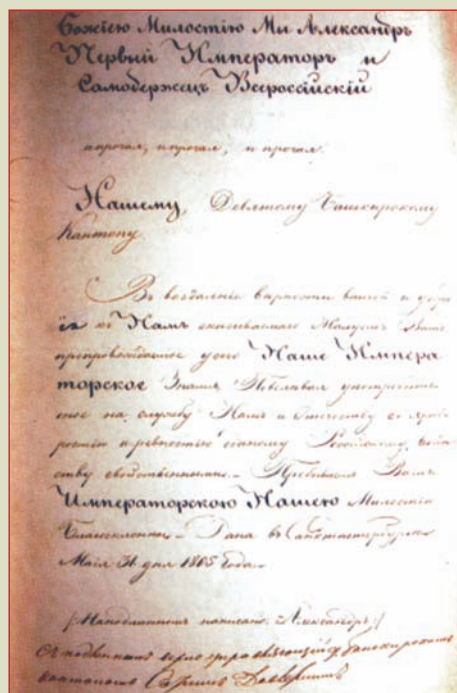 Божіею Милостію Мы Александръ
Первый Императоръ и
Самодержецъ Всероссійскій
и прочая, и прочая, и прочая.
Нашему, Девятому Башкирскому
Кантону.
Въ воздаяніе вѣрности вашей и
къ Намъ Жалуемъ Вамъ
препровождаемое у сего Наше Импера
торское Знамя Повелѣвая
на службу Намъ и Отечеству съ
ревностію Россійскому
ству свойственными. Пребываемъ Вамъ
Императорскою Нашею Милостію
Благосклонны. Дана въ Санктпетербургѣ
Маія 31 дня 1805 года.
На подлинномъ написано: Александръ.
Съ подлиннымъ вѣрно управляющій 9 башкирскимъ
кантономъ